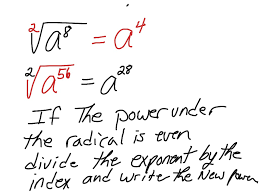 ²√a⁸ = a⁴
²√a⁵⁶ = a²⁸
If The power under
the radical is even
divide the exponent by the
index and write the New Power